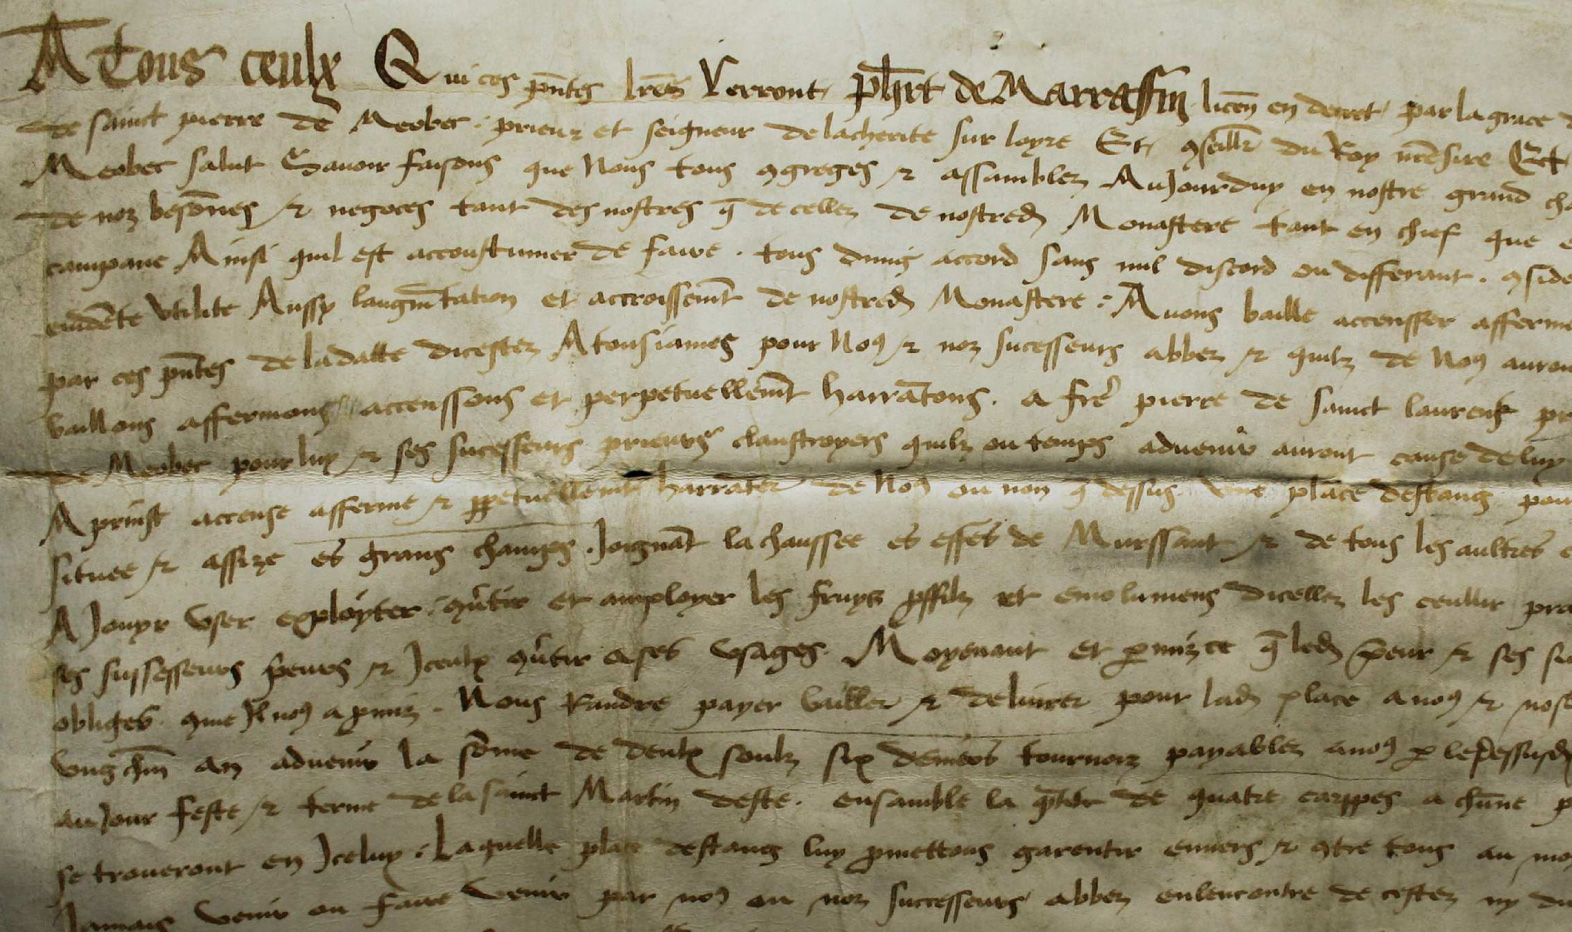 A Tous ceulx Qui ces pntes lres Verront phlrt de Marraffin licen en decret par la grace d
de sainct pierre de Meobec prieur et seigneur de lacherite sur loyre Et conseillr du Roy nre sire Et
Meobec salut Savoir faisons que Nous tous congreges et assamblez Aujourduy en nostre grand cha
de noz besones et negoces tant des nostres q de celles de nostred Monastere tant en chief que e
campane Ainsi quil est accoustumer de faire tous dung accord sans nul discord ou differant conside
evidente utilite Aussy laugmtation et accroissemt de nostred Monastere Avons baille accensser afferme
par ces pntes de la datte dicestez A tousiames pour Nos et noz sucesseurs abbez et quilz de Nos auron
baillons affermons accenssons et perpetuellemt harratons a frere pierre de sainct laurens pr
de Meobec pour luy et ses sucesseurs prieurs claustroyers quilz ou temps advenir auront cause de luy
A prinst accense afferme et perpetuellemt harrater de Nos ou nom q dessus une place destang pour
situee et assize es grans champs Joignat la chaussee es effes de Murssaut et de tous les aultres
A Jouyr user exployter et employer les fruytz proffilz et emolumens dicellez les ceullir
ses sussesseurs et Iceulx a ses usages Moyenant et promizce q led prieur et ses su
obliges que Il nos a promiz Nous Randre payer bailler et delivrer pour lad place a nos et nos
ung chm an advenir la some de deulx soulz six deniers tournoiz payablez a nos par le dessusd
au Jour feste et terme de la sainct Martin deste ensamble la de quatre carppes a chune p
se troueront en Iceluy Laquelle place destang luy promettons garentir envers et contre tous au mo
Jamais venir ou faire venir par nos ou noz successeurs abbez enlencontre de cestez ny du